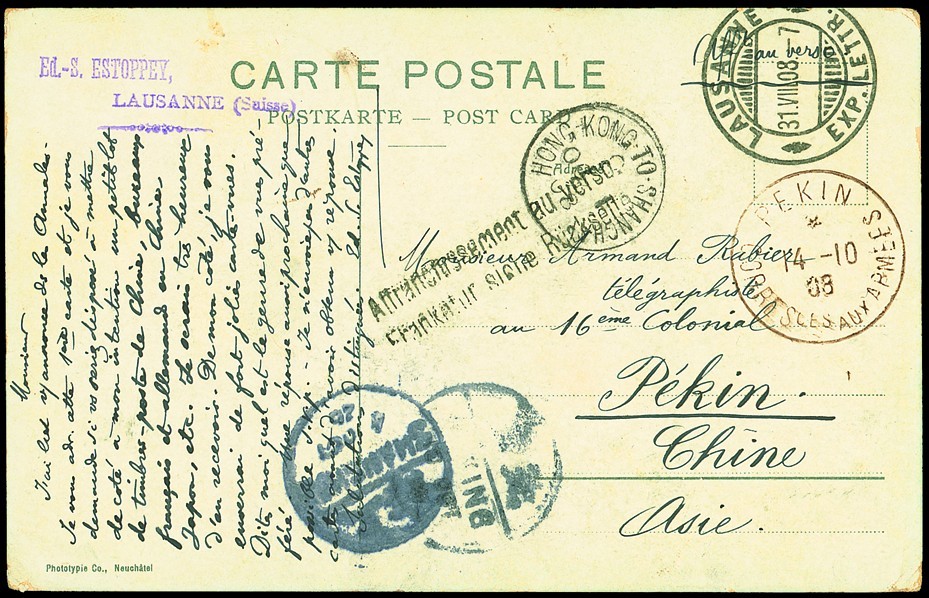 Ed.-S. ESTOPPEY,
LAUSANNE (Suisse)
CARTE POSTALE
POSTKARTE — POST CARD
au verso
LAUSANNE
31.VIII.08.-7
EXP. LETTR.
HONG-KONG-TO-SHANGHAI
Adresse
Affranchissement au verso.
Frankatur siehe Rückseite
PEKIN
14-10
08
CORR. D'ARMÉES
AUX ARMÉES
Monsieur Armand Rabier
télégraphiste
au 16eme Colonial
Pékin.
Chine
Asie.
Monsieur
J'ai lu l'annonce de
Je vous adresse cette carte et je vous
demande si vous seriez disposé à mettre
de côté à mon intention un petit lot
de timbres-poste de Chine, bureaux
français et allemands en Chine
Japon, etc. Je serais très heureux
d'en recevoir. De mon côté je vous
enverrai de fort jolies cartes vues.
Dites moi quel est le genre de vues pré-
féré. Une réponse aussi prochaine que
possible svp. — Je n'envoie pas d'autre
carte avant d'avoir obtenu une réponse.
Salutations distinguées Ed. S. Estoppey
Phototypie Co., Neuchâtel